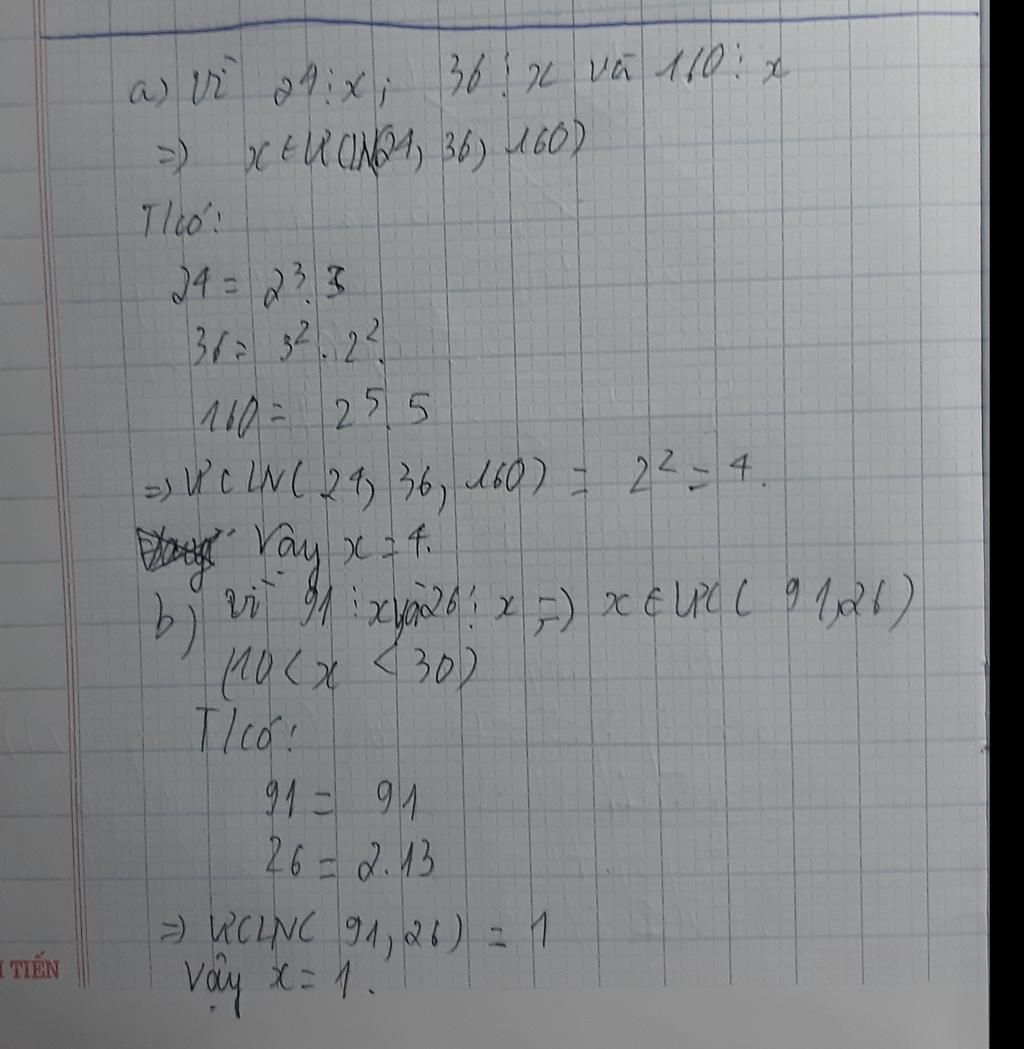 a) Vì 24⋮x; 36⋮x và 160⋮x
=> x ∈ ƯCLN(24, 36, 160)
T/có:
24 = 2³.3
36 = 3².2².
160 = 2⁵.5
=> ƯCLN(24, 36, 160) = 2² = 4.
Vậy x = 4.
b) Vì 91⋮x và 26⋮x => x ∈ ƯC(91, 26)
(10 < x < 30)
T/có:
91 = 91
26 = 2.13
=> ƯCLN(91, 26) = 1
Vậy x = 1.
TIẾN